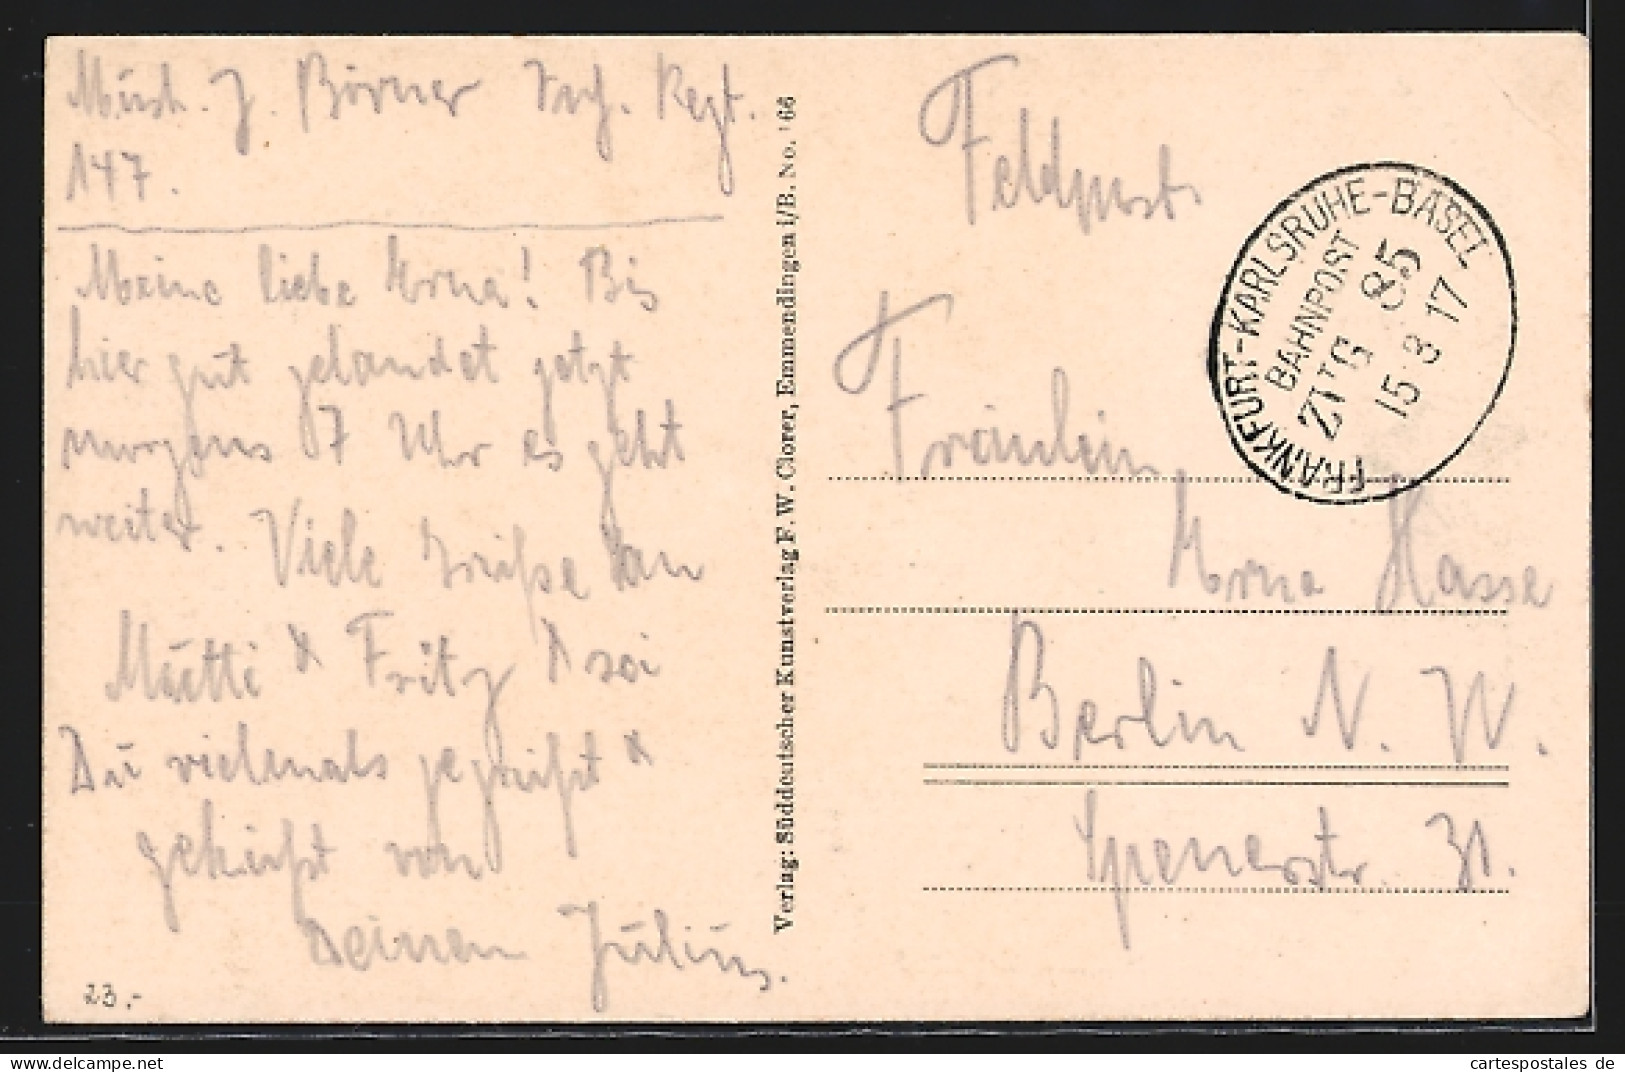 Musk. J. Börner Inf. Regt.
147.
Meine liebe Erna! Bis
hier gut gelandet jetzt
morgens 7 Uhr es geht
weiter. Viele Grüße an
Mutti & Fritz & sei
Du vielemals gegrüßt &
geküßt von
Deinem Julius.
23.-
Verlag: Süddeutscher Kunstverlag F. W. Clorer, Emmendingen i/B. No. 166
Feldpost
FRANKFURT-KARLSRUHE-BASEL
BAHNPOST
ZUG 85
15 8 17
Fräulein
Erna Hasse
Berlin N. W.
Spenerstr. 31.
cartespostales de